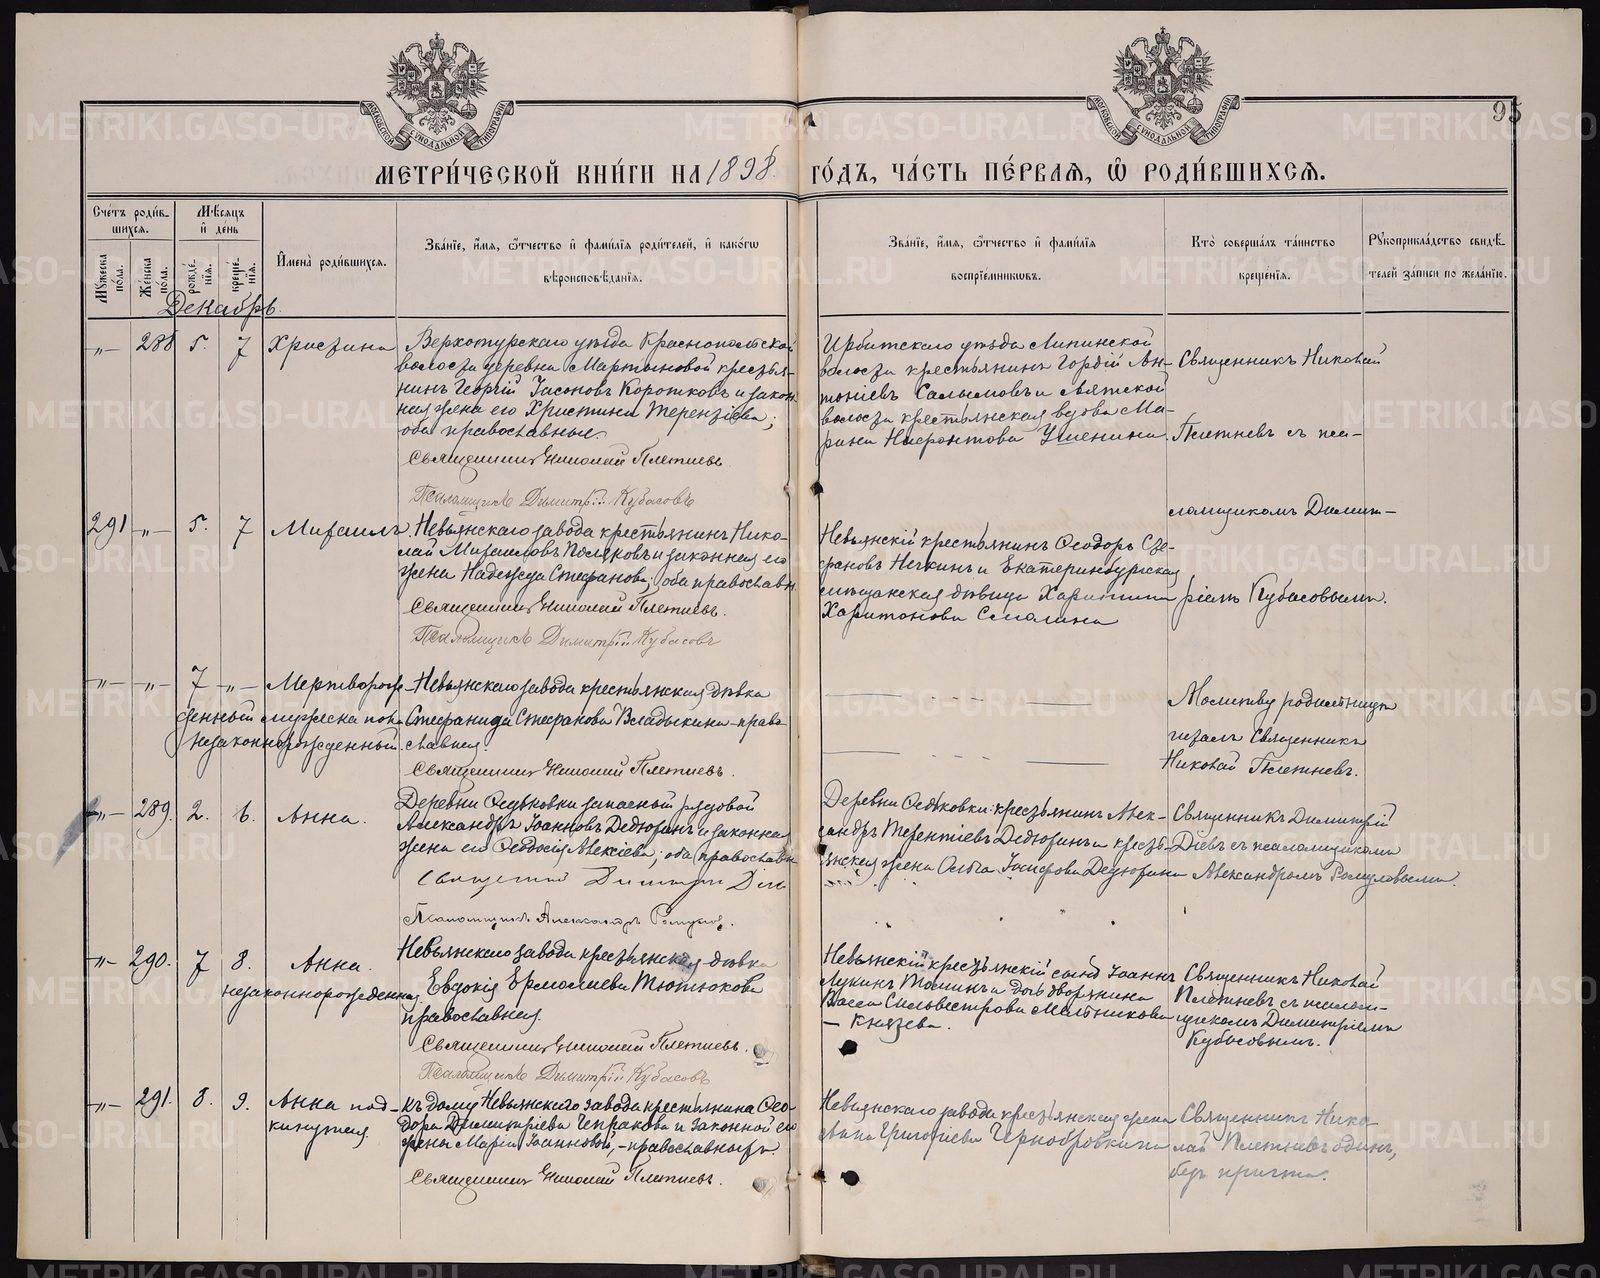 МОСКОВСКОЙ СѴНОДАЛЬНОЙ ТИПОГРАФІИ
МОСКОВСКОЙ СѴНОДАЛЬНОЙ ТИПОГРАФІИ
95
МЕТРИ́ЧЕСКОЙ КНИ́ГИ НА 1898 ГО́ДЪ, ЧА́СТЬ ПЕ́РВАЯ, Ѡ РОДИ́ВШИХСЯ.
Сче́тъ роди́в-
шихся.
Мѣсяцъ
и де́нь
Мꙋ́жеска по́ла.
Же́нска по́ла.
рожде́нїя.
креще́нїя.
Имена̀ роди́вшихся.
Зва́нїе, и́мя, ѻ҆́тчество и фами́лїя роди́телей, и како́гѡ
вѣроисповѣ́данїя.
Зва́нїе, и́мя, ѻ҆́тчество и фами́лїя
воспрїе́мникѡвъ.
Кто̀ соверша́лъ та́инство
креще́нїя.
Рꙋкоприкла́дство свидѣ́-
телей за́писи по жела́нїю.
Декабрь
„— 288 5. 7 Христина
Верхотурскаго уѣзда Краснопольской
волости деревни Мартыновой крестья-
нинъ Георгій Іасоновъ Коротковъ и закон
ная жена его Христина Терентіева;
оба православные.
Священникъ Николай Плетневъ
Псаломщикъ Димитрій Кубасовъ
Ирбитскаго уѣзда Липинской
волости крестьянинъ Гордій Ан-
тоніевъ Салымовъ и Аятской
волости крестьянская вдова Ма-
рина Ушенина.
Священникъ Николай
Плетневъ съ пса-
ломщикомъ Димит-
ріемъ Кубасовымъ.
291 „— 5. 7 Михаилъ
Невьянскаго завода крестьянинъ Нико-
лай Михаиловъ Поляковъ и законная его
жена Надежда Стефанова; оба православн
Священникъ Николай Плетневъ.
Псаломщикъ Димитрій Кубасовъ
Невьянскій крестьянинъ Ѳеодоръ Сте-
фановъ и Екатеринбургская
мѣщанская дѣвица Харитина
Харитонова Смолина
„— „— 7 „— Мертворож-
денный мужска пола
незаконнорожденный.
Невьянскаго завода крестьянская дѣвка
Стефанида Стефанова Владыкина-право
славная.
Священникъ Николай Плетневъ.
Молитву родильницѣ
читалъ Священникъ
Николай Плетневъ.
„— 289. 2. 6. Анна.
Деревни Ѳедьковки запасный рядовой
Александръ Іоанновъ Дедюхинъ и законная
жена его Ѳеодосія Алексіева; оба православн
Священникъ Димитрій
Псаломщикъ Александръ
Деревни Ѳедьковки: крестьянинъ Алек-
сандръ Терентіевъ Дедюхинъ и кресть-
янская жена Ольга Дедюхина
Священникъ Димитрій
съ псаломщикомъ
Александромъ
„— 290. 7 8. Анна.
незаконнорожденная.
Невьянскаго завода крестьянская дѣвка
Евдокія Ермолаева Тютюкова
православная.
Священникъ Николай Плетневъ.
Псаломщикъ Димитрій Кубасовъ
Невьянскій крестьянскій сынъ Іоаннъ
Лукинъ Топинъ и дочь дворянина
Васса Сильвестрова Мельникова
— Князева.
Священникъ Николай
Плетневъ съ псалом-
щикомъ Димитріемъ
Кубасовымъ.
„— 291. 8. 9. Анна под-
кинутая
къ дому Невьянскаго завода крестьянина Ѳео-
дора Димитріева Чепракова и законной его
жены Маріи Іоанновой,-православныхъ.
Священникъ Николай Плетневъ.
Невьянскаго завода крестьянская жена
Анна Григоріева Чернобровкина
Священникъ Нико-
лай Плетневъ одинъ,
безъ причта.
METRIKI.GASO-URAL.RU